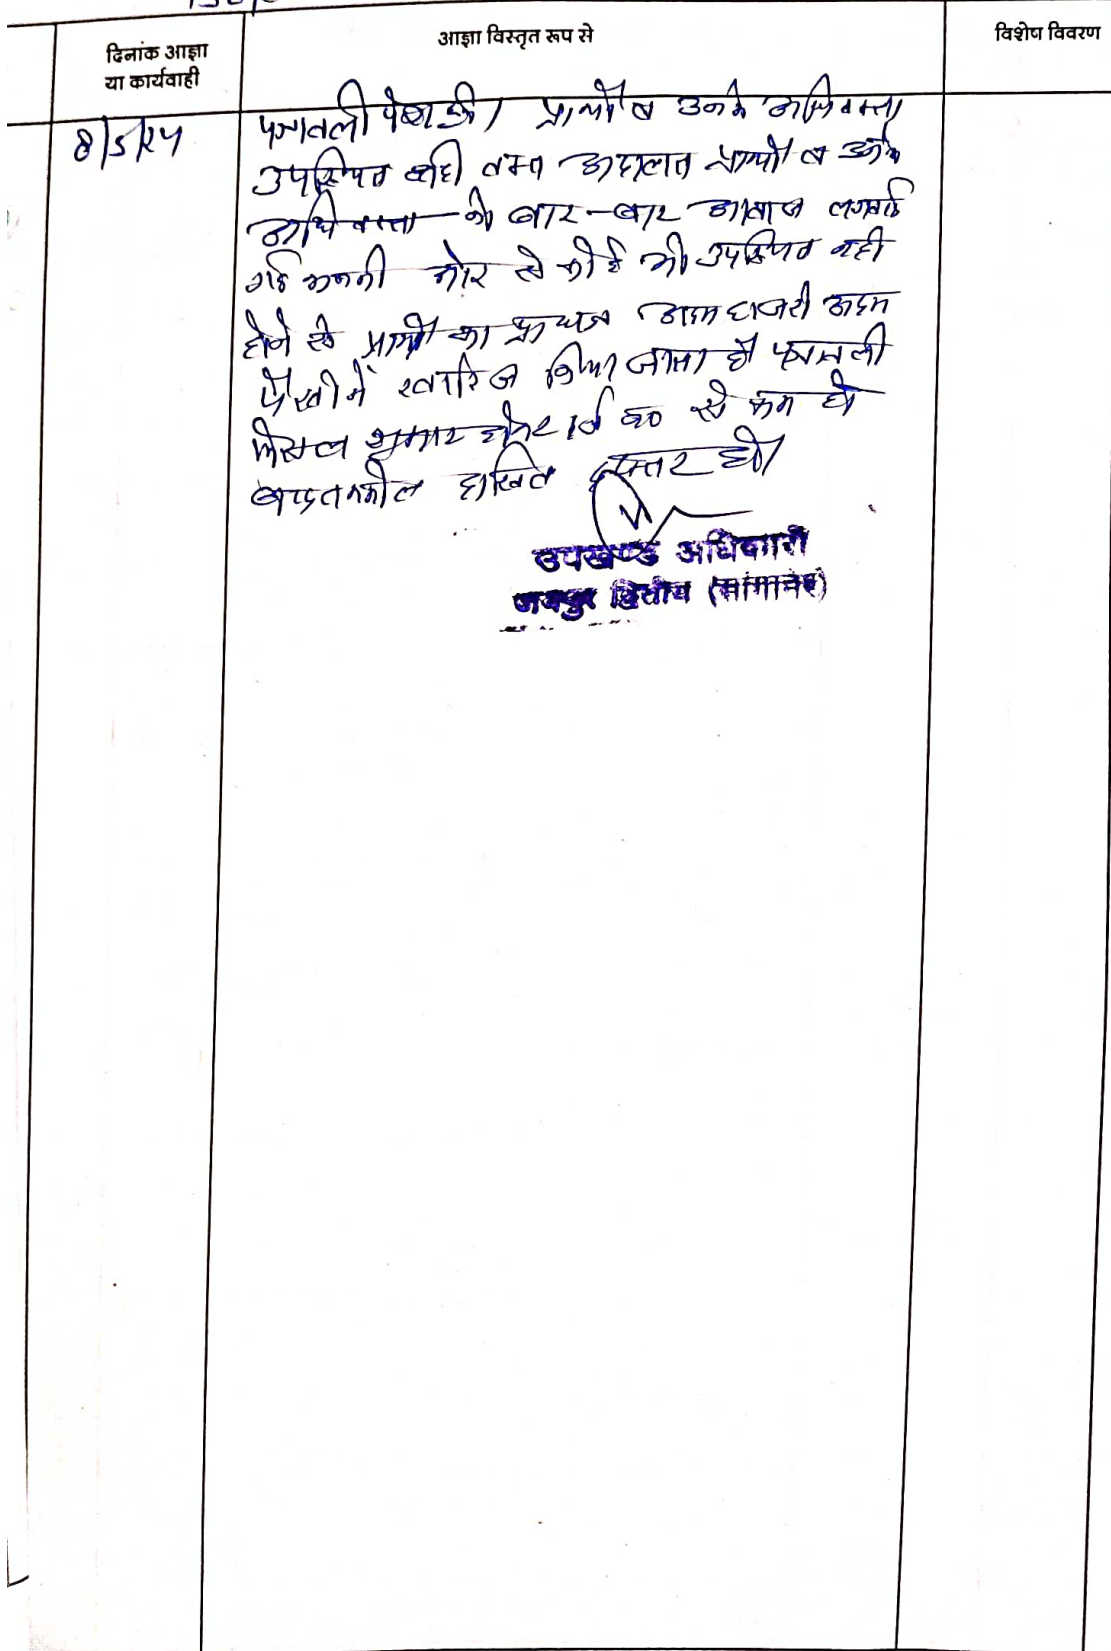 दिनांक आज्ञा
या कार्यवाही
आज्ञा विस्तृत रूप से
विशेष विवरण
8/5/24
पत्रावली पेश की। प्रार्थी व उनके अभिवक्ता
उपस्थित नही वक्त अदालत प्रार्थी व उनके
अधिवक्ता को बार-बार आवाज लगवाई
गई उनकी ओर से कोई भी उपस्थित नही
होने से प्रार्थी का प्रा पत्र अदम हाजरी अदम
पैरवी में खारिज किया जाता है पत्रावली
फैसल शुमार होकर नं0 से कम हो
बादतकमील दाखिल दफ्तर हो।
उपखण्ड अधिकारी
जयपुर द्वितीय (सांगानेर)